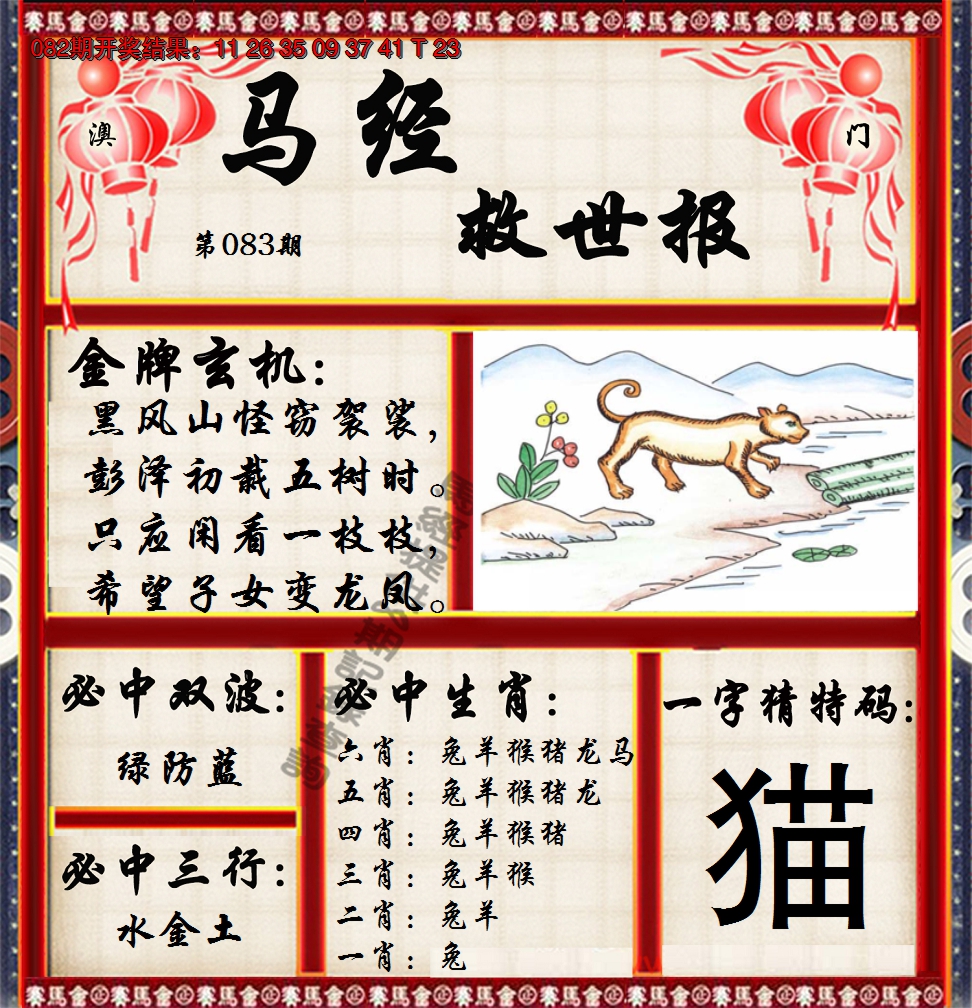 082期开奖结果：11 26 35 09 37 41 T 23
澳
门
马经
救世报
第083期
金牌玄机：
黑风山怪窃袈裟，
彭泽初栽五树时。
只应闲看一枝枝，
希望子女变龙凤。
必中双波：
绿防蓝
必中三行：
水金土
必中生肖：
六肖：兔羊猴猪龙马
五肖：兔羊猴猪龙
四肖：兔羊猴猪
三肖：兔羊猴
二肖：兔羊
一肖：兔
一字猜特码：
猫